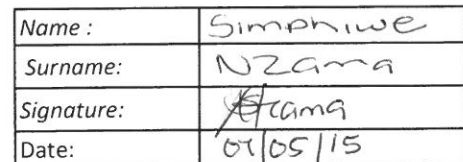 Name : Simphiwe
Surname: NZama
Signature:
Date: 07/05/15